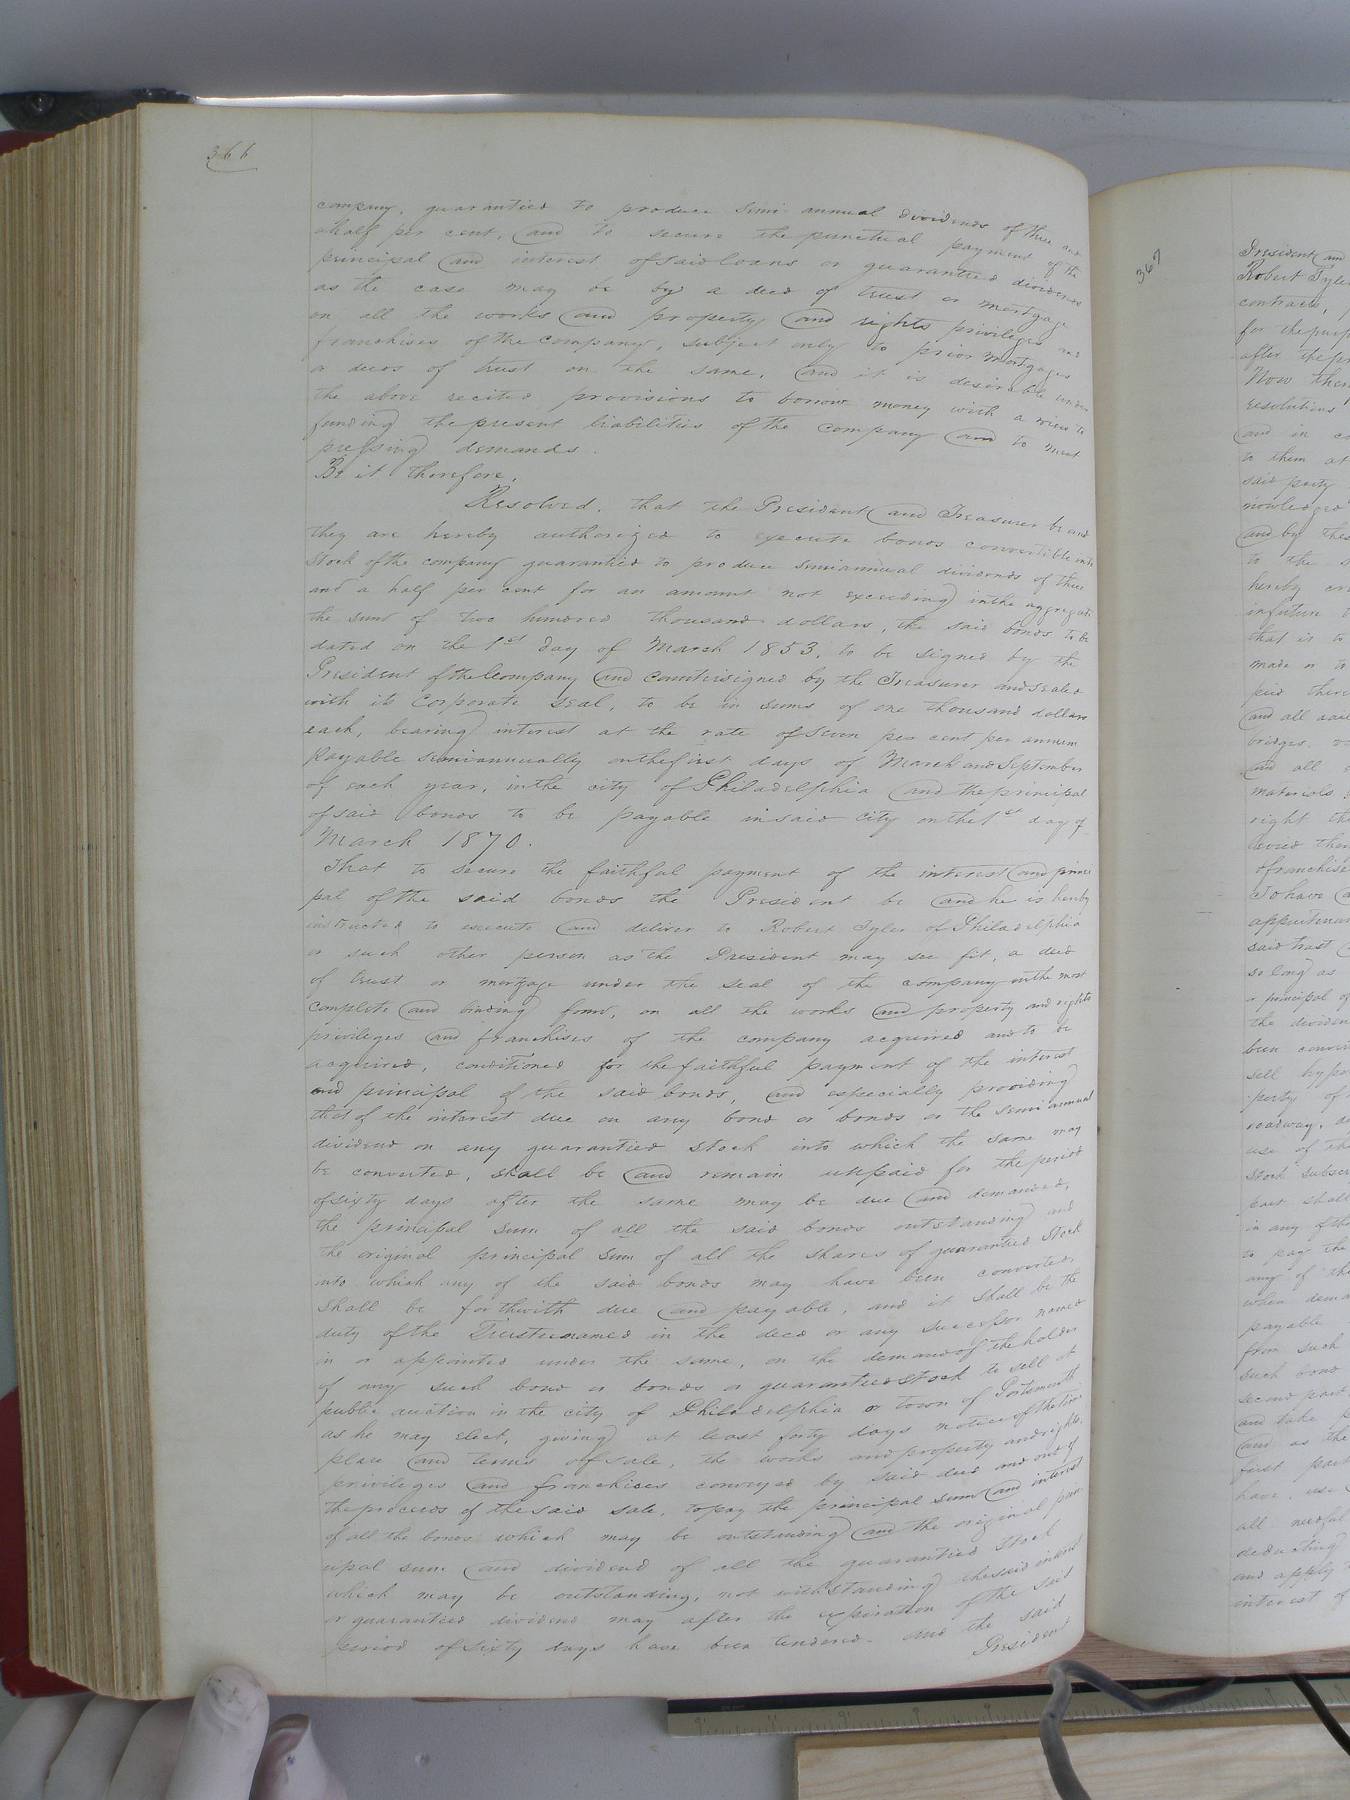 366
company, guarantied to produce semi-annual dividends of three and
a half per cent, and to secure the punctual payment of the
principal and interest of said loans or guarantied dividends
as the case may be by a deed of trust or mortgage
on all the works and property and rights privileges and
franchises of the company, subject only to prior mortgages
or deeds of trust on the same, and it is desirable under
the above recited provisions to borrow money with a view to
funding the present liabilities of the company and to meet
pressing demands.
Be it therefore,
Resolved, that the President and Treasurer be and
they are hereby authorized to execute bonds convertible into
Stock of the company guarantied to produce semiannual dividends of three
and a half per cent for an amount not exceeding in the aggregate
the sum of two hundred thousand dollars, the said bonds to be
dated on the 1st day of March 1853, to be signed by the
President of the Company and Countersigned by the Treasurer and sealed
with its Corporate seal, to be in sums of one thousand dollars
each, bearing interest at the rate of seven per cent per annum
Payable semiannually on the first days of March and September
of each year, in the city of Philadelphia and the principal
of said bonds to be payable in said city on the 1st day of
March 1870.
That to secure the faithful payment of the interest and princi
pal of the said bonds the President be and he is hereby
instructed to execute and deliver to Robert Tyler of Philadelphia
or such other person as the President may see fit, a deed
of trust or mortgage under the seal of the company in the most
complete and binding form, on all the works and property and rights
privileges and franchises of the company acquired and to be
acquired, conditioned for the faithful payment of the interest
and principal of the said bonds, and especially providing
that if the interest due on any bond or bonds or the semi annual
dividend on any guarantied stock into which the same may
be converted, shall be and remain unpaid for the period
of sixty days after the same may be due and demanded,
the principal sum of all the said bonds outstanding and
the original principal sum of all the shares of guarantied Stock
into which any of the said bonds may have been converted,
shall be forthwith due and payable, and it shall be the
duty of the Trustee named in the deed or any successor named
in or appointed under the same, on the demand of the holder
of any such bond or bonds or guarantied stock to sell at
public auction in the city of Philadelphia or town of Portsmouth
as he may elect, giving at least forty days notice of the time
place and terms of sale, the works and property and rights,
privileges and franchises conveyed by said deed and out of
the proceeds of the said sale, to pay the principal sum and interest
of all the bonds which may be outstanding and the original prin
cipal sum and dividend of all the guarantied stock
which may be outstanding, not withstanding the said interest
or guarantied dividend may after the expiration of the said
period of sixty days have been tendered. and the said
President
367
President and
Robert Tyler
contracts,
for the purp
after the pr
Now then
resolutions
and in co
to them at
said party
nowledged
and by thes
to the s
hereby
in future
that is to
made or to
pied ther
and all
bridges,
and all
materials,
right
ther
franchise
To have
appurtenan
said trust
so long as
principal of
the dividen
been conver
sell hypo
perty of
roadway,
use of the
stock subscr
part shall
in any of the
to pay the
any of the
when dema
payable
from such
such bond
second part
and take
and as the
first part
have, use
all needful
deducting
and apply
interest of